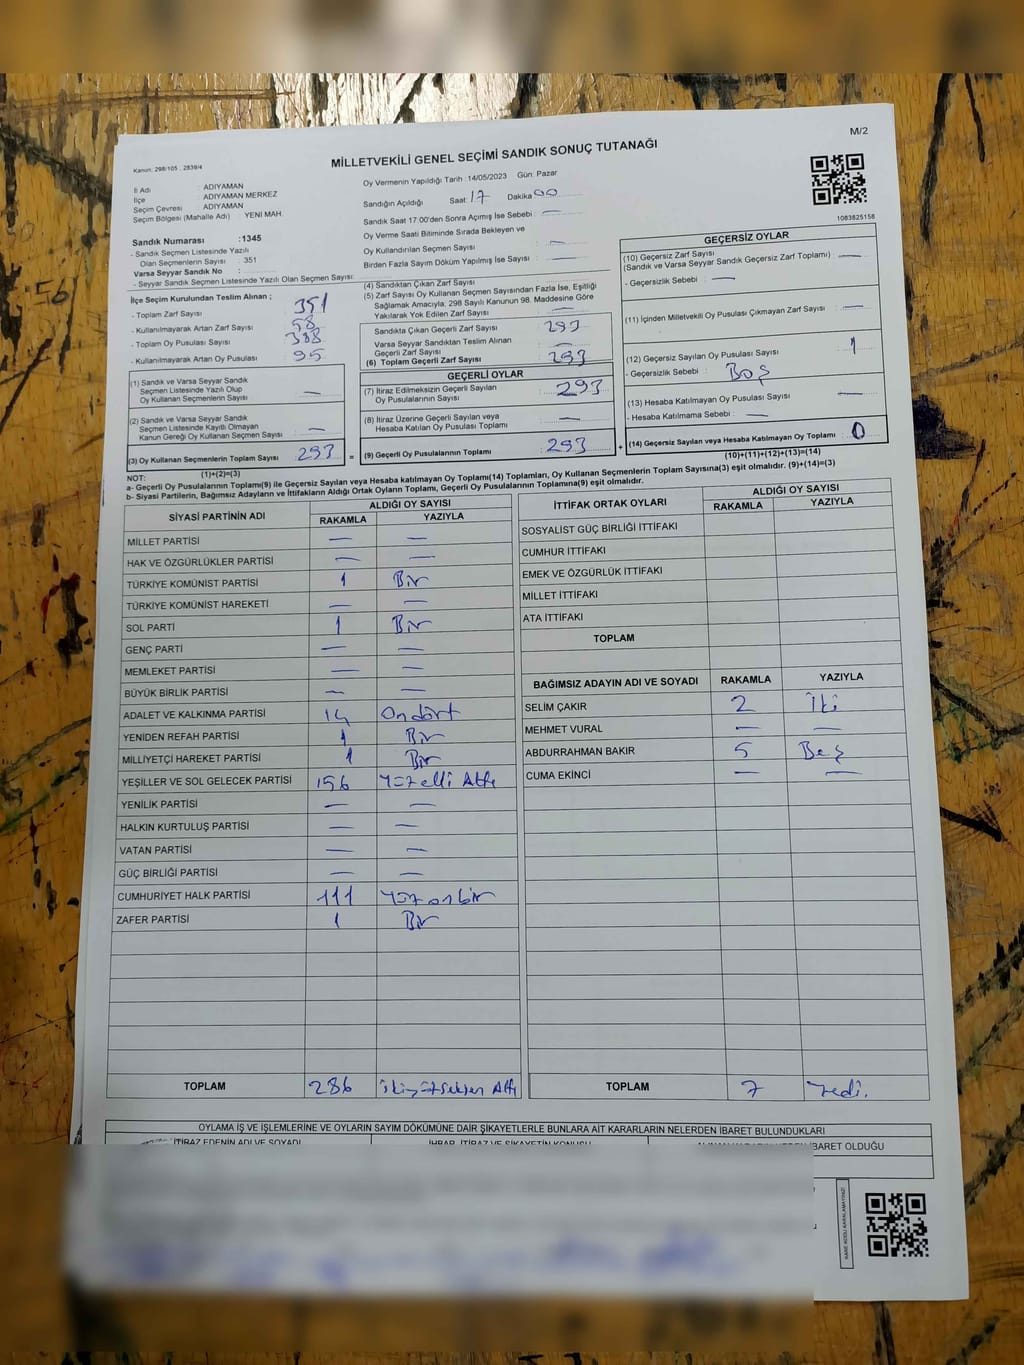 M/2
Kanun: 298/105 : 2839/4
MİLLETVEKİLİ GENEL SEÇİMİ SANDIK SONUÇ TUTANAĞI
İl Adı ADIYAMAN
İlçe ADIYAMAN MERKEZ
Seçim Çevresi ADIYAMAN
Seçim Bölgesi (Mahalle Adı) : YENİ MAH.
Oy Vermenin Yapıldığı Tarih : 14/05/2023 Gün: Pazar
Sandığın Açıldığı Saat : 17 Dakika 00
Sandık Saat 17:00'den Sonra Açımış İse Sebebi : —
Oy Verme Saati Bitiminde Sırada Bekleyen ve
Oy Kullandırılan Seçmen Sayısı —
Birden Fazla Sayım Döküm Yapılmış İse Sayısı : —
1083825158
Sandık Numarası :1345
- Sandık Seçmen Listesinde Yazılı
Olan Seçmenlerin Sayısı : 351
Varsa Seyyar Sandık No :
- Seyyar Sandık Seçmen Listesinde Yazılı Olan Seçmen Sayısı:
İlçe Seçim Kurulundan Teslim Alınan ;
- Toplam Zarf Sayısı : 351
- Kullanılmayarak Artan Zarf Sayısı : 58
- Toplam Oy Pusulası Sayısı : 388
- Kullanılmayarak Artan Oy Pusulası : 95
(1) Sandık ve Varsa Seyyar Sandık
Seçmen Listesinde Yazılı Olup
Oy Kullanan Seçmenlerin Sayısı : —
(2) Sandık ve Varsa Seyyar Sandık
Seçmen Listesinde Kayıtlı Olmayan
Kanun Gereği Oy Kullanan Seçmen Sayısı : —
(3) Oy Kullanan Seçmenlerin Toplam Sayısı : 293
(1)+(2)=(3)
(4) Sandıktan Çıkan Zarf Sayısı :
(5) Zarf Sayısı Oy Kullanan Seçmen Sayısından Fazla İse, Eşitliği
Sağlamak Amacıyla; 298 Sayılı Kanunun 98. Maddesine Göre
Yakılarak Yok Edilen Zarf Sayısı : —
Sandıkta Çıkan Geçerli Zarf Sayısı : 293
Varsa Seyyar Sandıktan Teslim Alınan
Geçerli Zarf Sayısı : —
(6) Toplam Geçerli Zarf Sayısı : 293
GEÇERLİ OYLAR
(7) İtiraz Edilmeksizin Geçerli Sayılan
Oy Pusulalarının Sayısı : 293
(8) İtiraz Üzerine Geçerli Sayılan veya
Hesaba Katılan Oy Pusulası Toplamı : —
= (9) Geçerli Oy Pusulalarının Toplamı : 293 +
GEÇERSİZ OYLAR
(10) Geçersiz Zarf Sayısı
(Sandık ve Varsa Seyyar Sandık Geçersiz Zarf Toplamı) : —
- Geçersizlik Sebebi : —
(11) İçinden Milletvekili Oy Pusulası Çıkmayan Zarf Sayısı : —
(12) Geçersiz Sayılan Oy Pusulası Sayısı : 1
- Geçersizlik Sebebi : Boş
(13) Hesaba Katılmayan Oy Pusulası Sayısı : —
- Hesaba Katılmama Sebebi : —
(14) Geçersiz Sayılan veya Hesaba Katılmayan Oy Toplamı : 0
(10)+(11)+(12)+(13)=(14)
NOT:
a- Geçerli Oy Pusulalarının Toplamı(9) ile Geçersiz Sayılan veya Hesaba katılmayan Oy Toplamı(14) Toplamları, Oy Kullanan Seçmenlerin Toplam Sayısına(3) eşit olmalıdır. (9)+(14)=(3)
b- Siyasi Partilerin, Bağımsız Adayların ve İttifakların Aldığı Ortak Oyların Toplamı, Geçerli Oy Pusulalarının Toplamına(9) eşit olmalıdır.
SİYASİ PARTİNİN ADI ALDIĞI OY SAYISI
RAKAMLA YAZIYLA
MİLLET PARTİSİ — —
HAK VE ÖZGÜRLÜKLER PARTİSİ — —
TÜRKİYE KOMÜNİST PARTİSİ 1 Bir
TÜRKİYE KOMÜNİST HAREKETİ — —
SOL PARTİ 1 Bir
GENÇ PARTİ — —
MEMLEKET PARTİSİ — —
BÜYÜK BİRLİK PARTİSİ — —
ADALET VE KALKINMA PARTİSİ 14 Ondört
YENİDEN REFAH PARTİSİ 1 Bir
MİLLİYETÇİ HAREKET PARTİSİ 1 Bir
YEŞİLLER VE SOL GELECEK PARTİSİ 156 Yüzelli Altı
YENİLİK PARTİSİ — —
HALKIN KURTULUŞ PARTİSİ — —
VATAN PARTİSİ — —
GÜÇ BİRLİĞİ PARTİSİ — —
CUMHURİYET HALK PARTİSİ 111 Yüzonbir
ZAFER PARTİSİ 1 Bir
TOPLAM 286 ikiyüzseksen Altı
İTTİFAK ORTAK OYLARI ALDIĞI OY SAYISI
RAKAMLA YAZIYLA
SOSYALİST GÜÇ BİRLİĞİ İTTİFAKI
CUMHUR İTTİFAKI
EMEK VE ÖZGÜRLÜK İTTİFAKI
MİLLET İTTİFAKI
ATA İTTİFAKI
TOPLAM
BAĞIMSIZ ADAYIN ADI VE SOYADI RAKAMLA YAZIYLA
SELİM ÇAKIR 2 İki
MEHMET VURAL — —
ABDURRAHMAN BAKIR 5 Beş
CUMA EKİNCİ — —
TOPLAM 7 Yedi.
OYLAMA İŞ VE İŞLEMLERİNE VE OYLARIN SAYIM DÖKÜMÜNE DAİR ŞİKAYETLERLE BUNLARA AİT KARARLARIN NELERDEN İBARET BULUNDUKLARI
İTİRAZ EDENİN ADI VE SOYADI İHBAR, İTİRAZ VE ŞİKAYETİN KONUSU İBARET OLDUĞU
KARE KODU KARALAMAYINIZ!